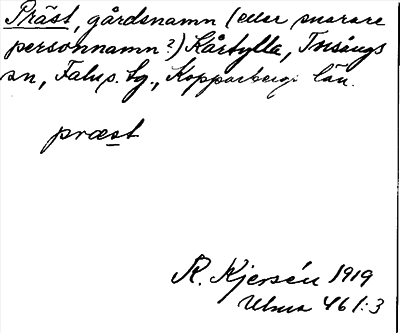 Präst, gårdsnamn (eller snarare
personnamn?) Kårtylla, Torsångs
sn, Falu s. tg., Kopparbergs län.
præst
R. Kjersén 1919
Ulma 46 1:3